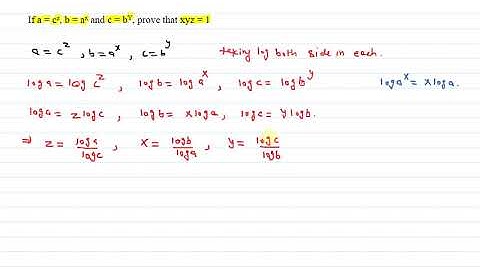 If a = cᶻ, b = aˣ and c = bʸ, prove that xyz = 1
a = cᶻ , b = aˣ , c = bʸ taking log both side in each.
log a = log cᶻ , log b = log aˣ , log c = log bʸ log aˣ = x log a.
log a = z log c , log b = x log a , log c = y log b.
⇒ z = log a / log c , x = log b / log a , y = log c / log b